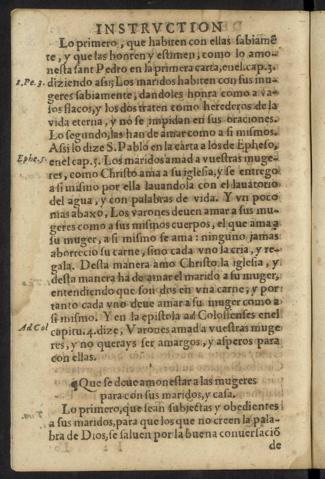 INSTRVCTION
Lo primero, que habiten con ellas sabiamẽ
te, y que las honren y estimen, como lo amo-
nesta sant Pedro en la primera carta, enel.cap.3.
1.Pe.3. diziendo assi; Los maridos habiten con sus mu
geres sabiamente, dandoles honra como a va-
sos flacos, y los dos traten como herederos de la
vida eterna, y no se impidan en sus oraciones.
Lo segundo, las han de amar como a si mismos.
Assi lo dize S. Pablo en la carta a los de Epheso,
Ephe.5. enel cap.5. Los maridos amad a vuestras muge-
res, como Christo ama a su iglesia, y se entrego
a si mismo por ella lauandola con el lauatorio
del agua, y con palabras de vida. Y vn poco
mas abaxo, Los varones deuen amar a sus mu-
geres como a sus mismos cuerpos, el que ama a
su muger, a si mismo se ama: ninguno jamas
aborrecio su carne, sino cada vno la cria, y re-
gala. Desta manera amo Christo la iglesia, y
desta manera há de amar el marido a su muger,
entendiendo que son dos en vna carne, y por
tanto cada vno deue amar a su muger como a
si mismo. Y en la epistola ad Colossenses enel
Ad Col capitu.4. dize, Varones amad a vuestras muge
res, y no querays ser amargos, y asperos para
con ellas.
Que se deue amonestar a las mugeres
para con sus maridos, y casa.
Lo primero, que sean subjectas y obedientes
a sus maridos, para que los que no creen la pala-
bra de Dios, se saluen por la buena conuersació
de